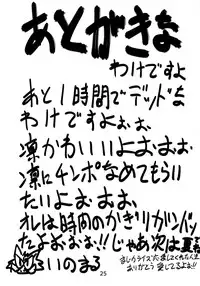 あとがきな
わけですよ
あと1時間でデッドな
わけですよぉぉ。
凛かわいいよぉぉぉ。
凛にチンポなめてもらい
たいよぉぉぉ。
オレは時間のかぎりガンバッ
たよぉぉぉ!!じゃあ次は夏
いのまる
25
ありがとう 愛してるよぉ!!